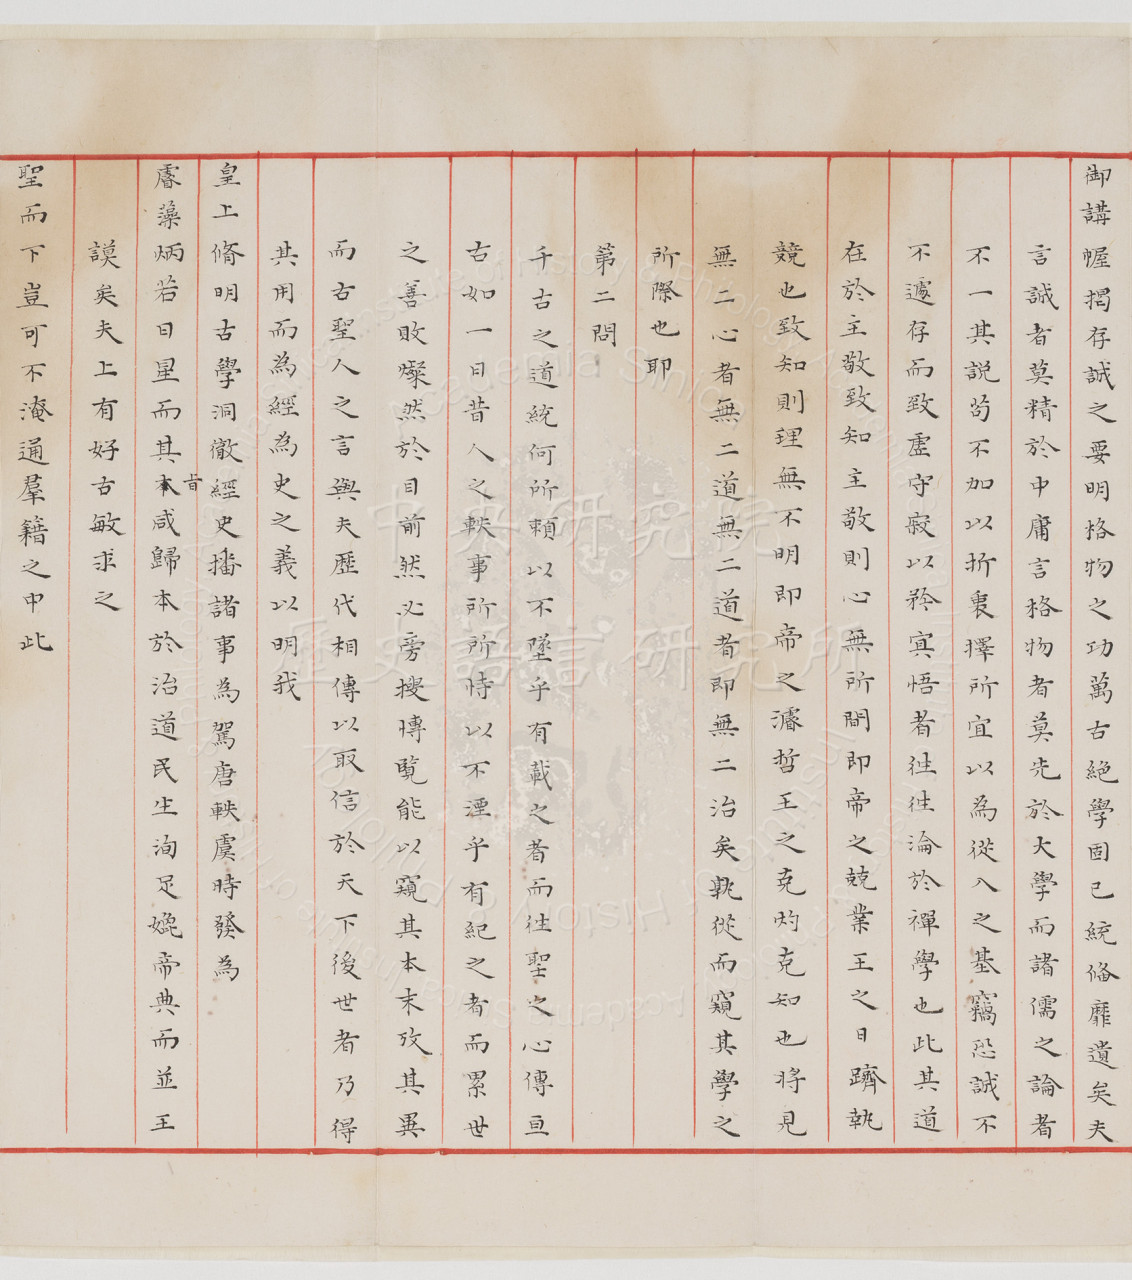 御講幄揭存誠之要明格物之功萬古絕學固已統俻靡遺矣夫
言誠者莫精於中庸言格物者莫先於大學而諸儒之論者
不一其說苟不加以折衷擇所宜以為從入之基竊恐誠不
不遽存而致虛守寂以矜冥悟者徃徃淪於禪學也此其道
在於主敬致知主敬則心無所間即帝之兢業王之日躋執
競也致知則理無不明即帝之濬哲王之克灼克知也將見
無二心者無二道無二道者即無二治矣孰從而窺其學之
所際也耶
第二問
千古之道統何所頼以不墜乎有載之者而徃聖之心傳亘
古如一日昔人之軼事所所恃以不湮乎有紀之者而累世
之善敗燦然於目前然必旁搜博覧能以窺其本末攷其異
而右聖人之言與夫歷代相傳以取信於天下後世者乃得
其用而為經為史之義以明我
皇上脩明古學洞徹經史播諸事為駕唐軼虞時發為
睿藻炳若日星而其本旨咸歸本於治道民生洵足媲帝典而並王
謨矣夫上有好古敏求之
聖而下豈可不淹通羣籍之申此
中央研究院
歷史語言研究所
Institute of History & Philology, Academia Sinica